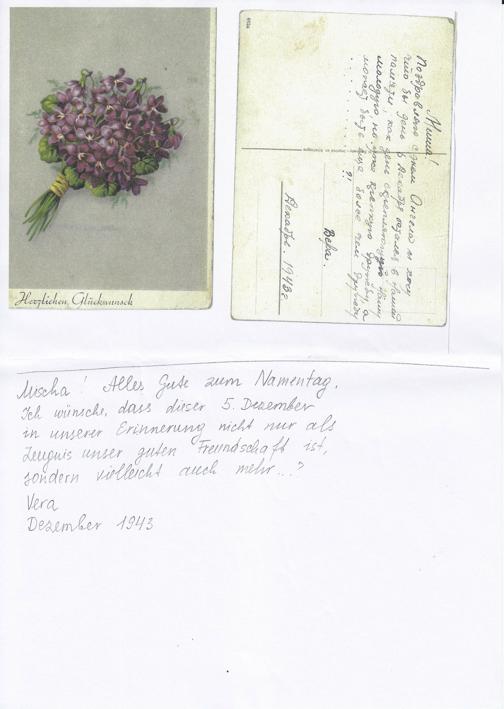 Herzlichen Glückwunsch
Миша!
Поздравляю с днем Ангела и хочу
что бы день 5 Декабря остался в нашей
памяти, как день скрепляющий нашу
молодую, но уже крепкую дружбу, а
может быть и еще более чем дружбу
?!
Вера.
Декабрь. 1943г
Mischa! Alles Gute zum Namentag.
Ich wünsche, dass dieser 5. Dezember
in unserer Erinnerung nicht nur als
Zeugnis unser guten Freundschaft ist,
sondern vielleicht auch mehr...?
Vera
Dezember 1943